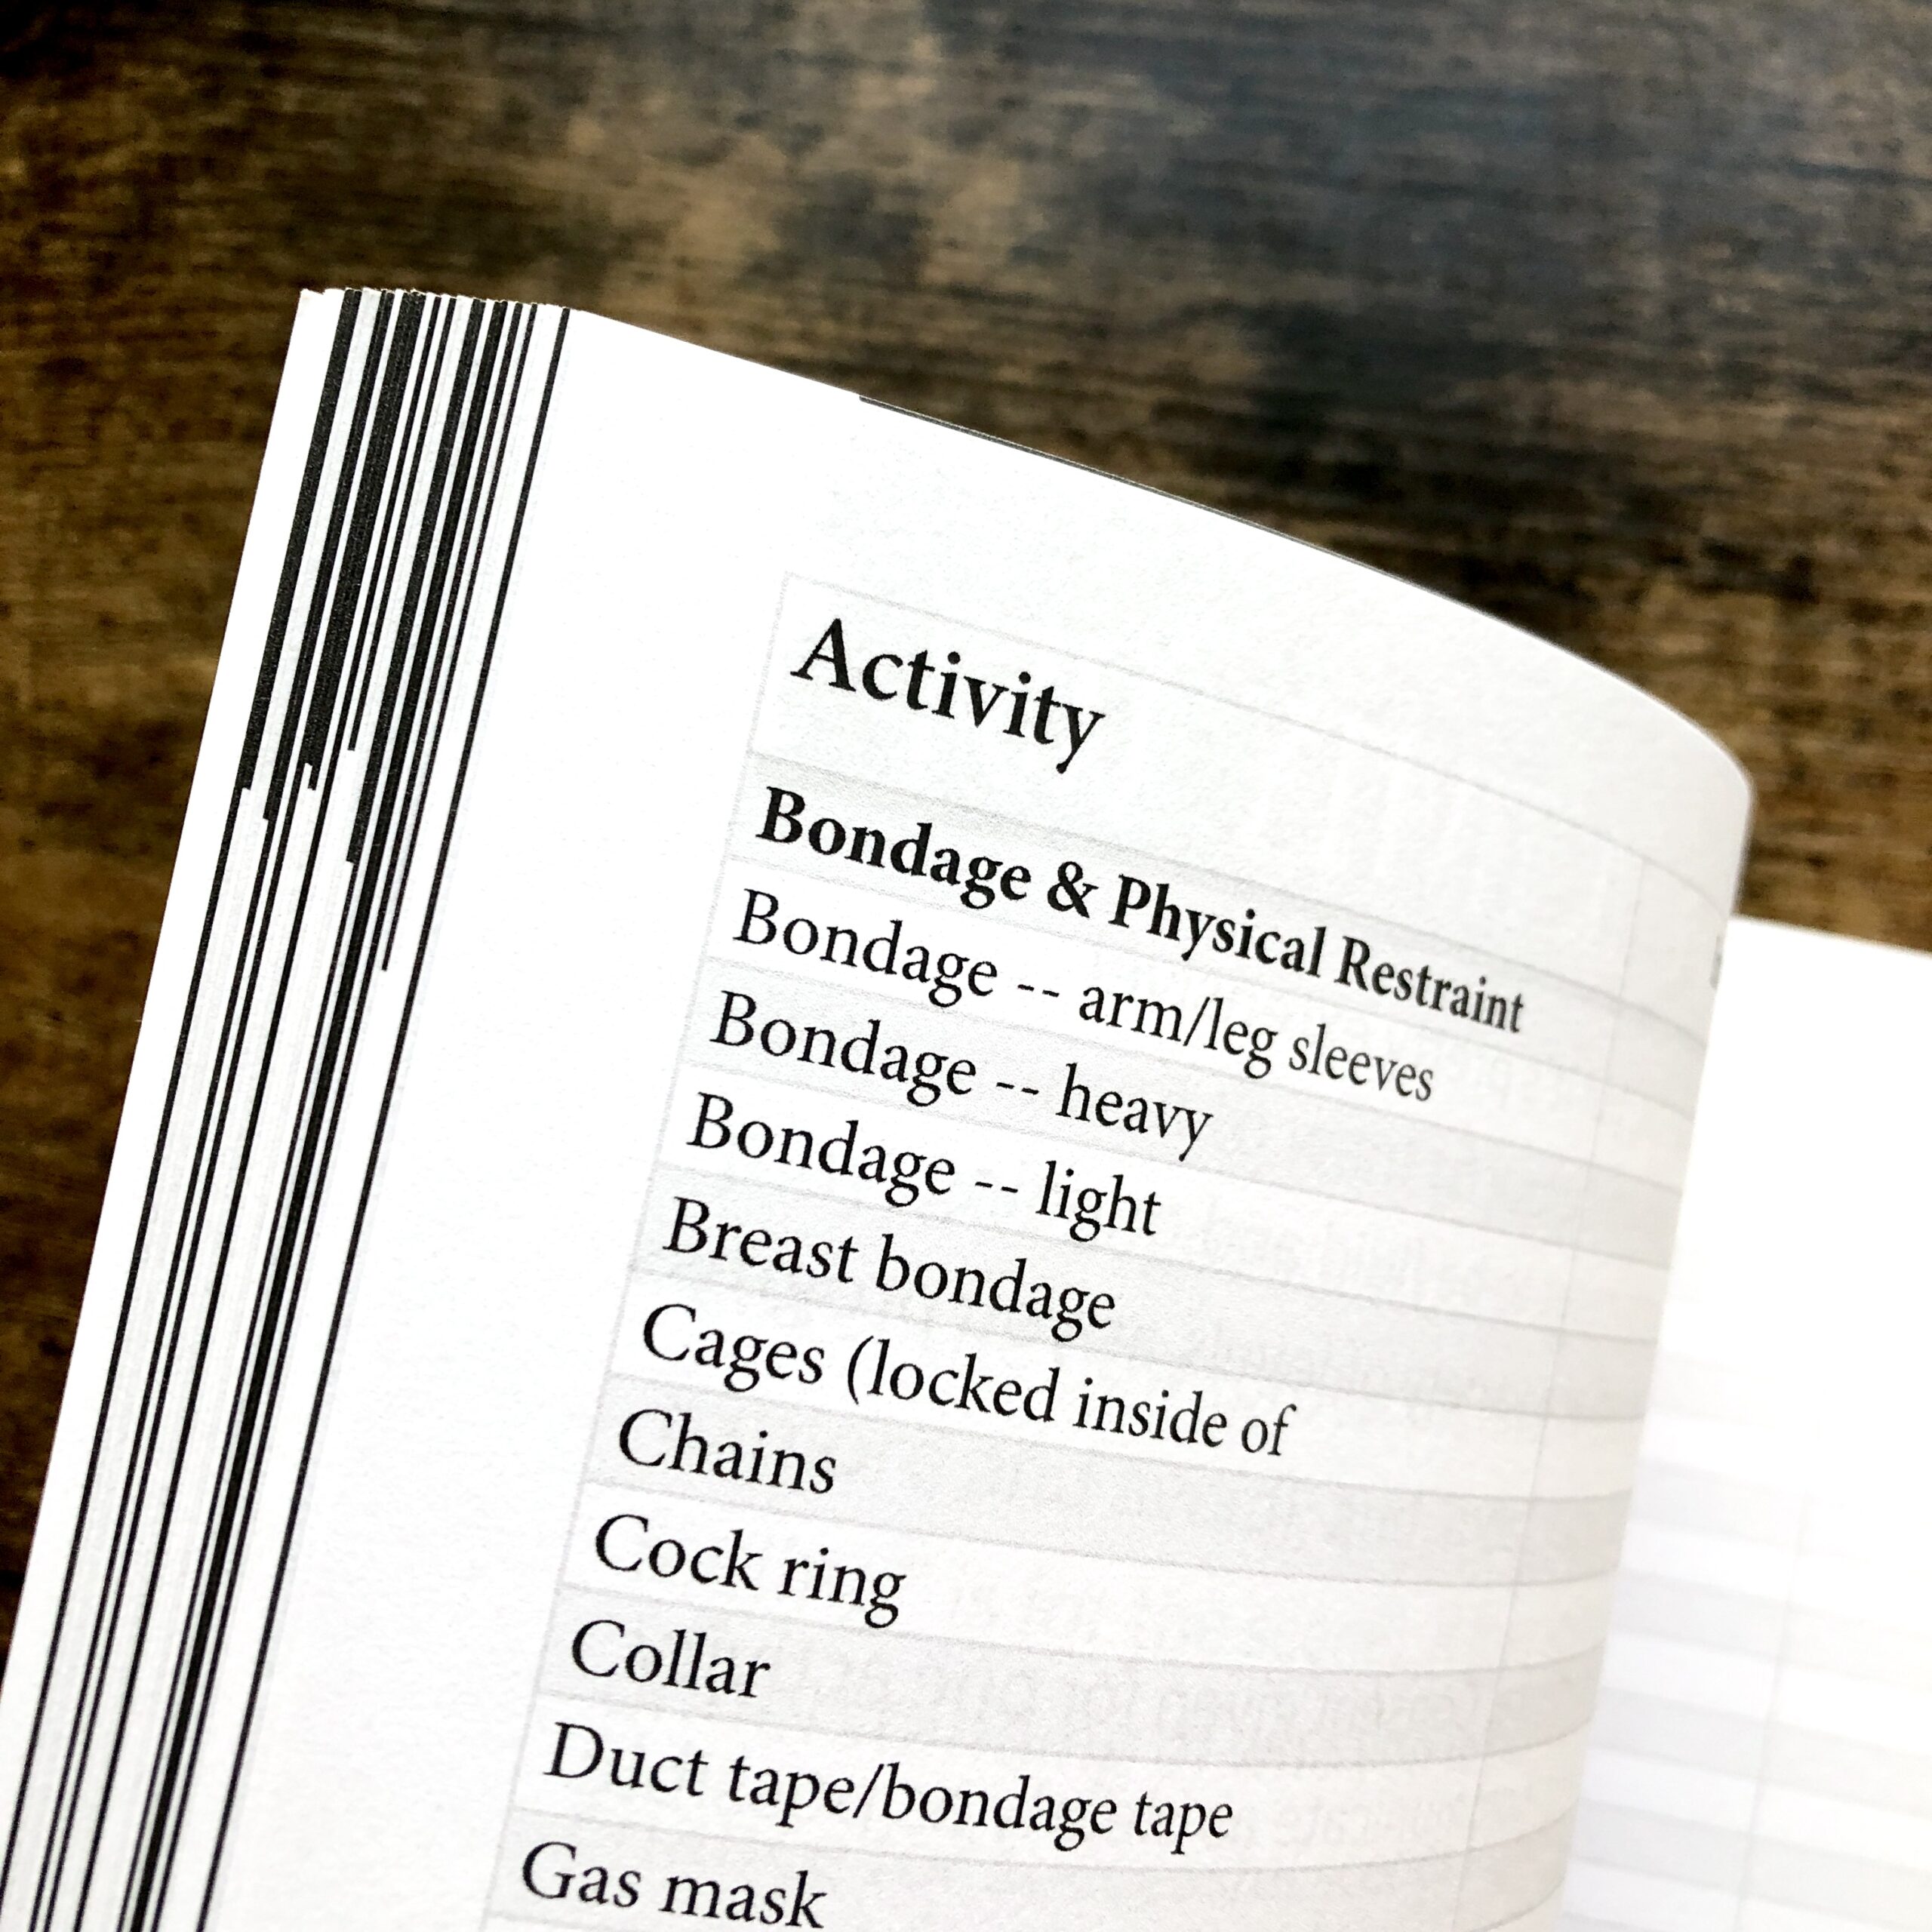 Activity
Bondage & Physical Restraint
Bondage -- arm/leg sleeves
Bondage -- heavy
Bondage -- light
Breast bondage
Cages (locked inside of
Chains
Cock ring
Collar
Duct tape/bondage tape
Gas mask